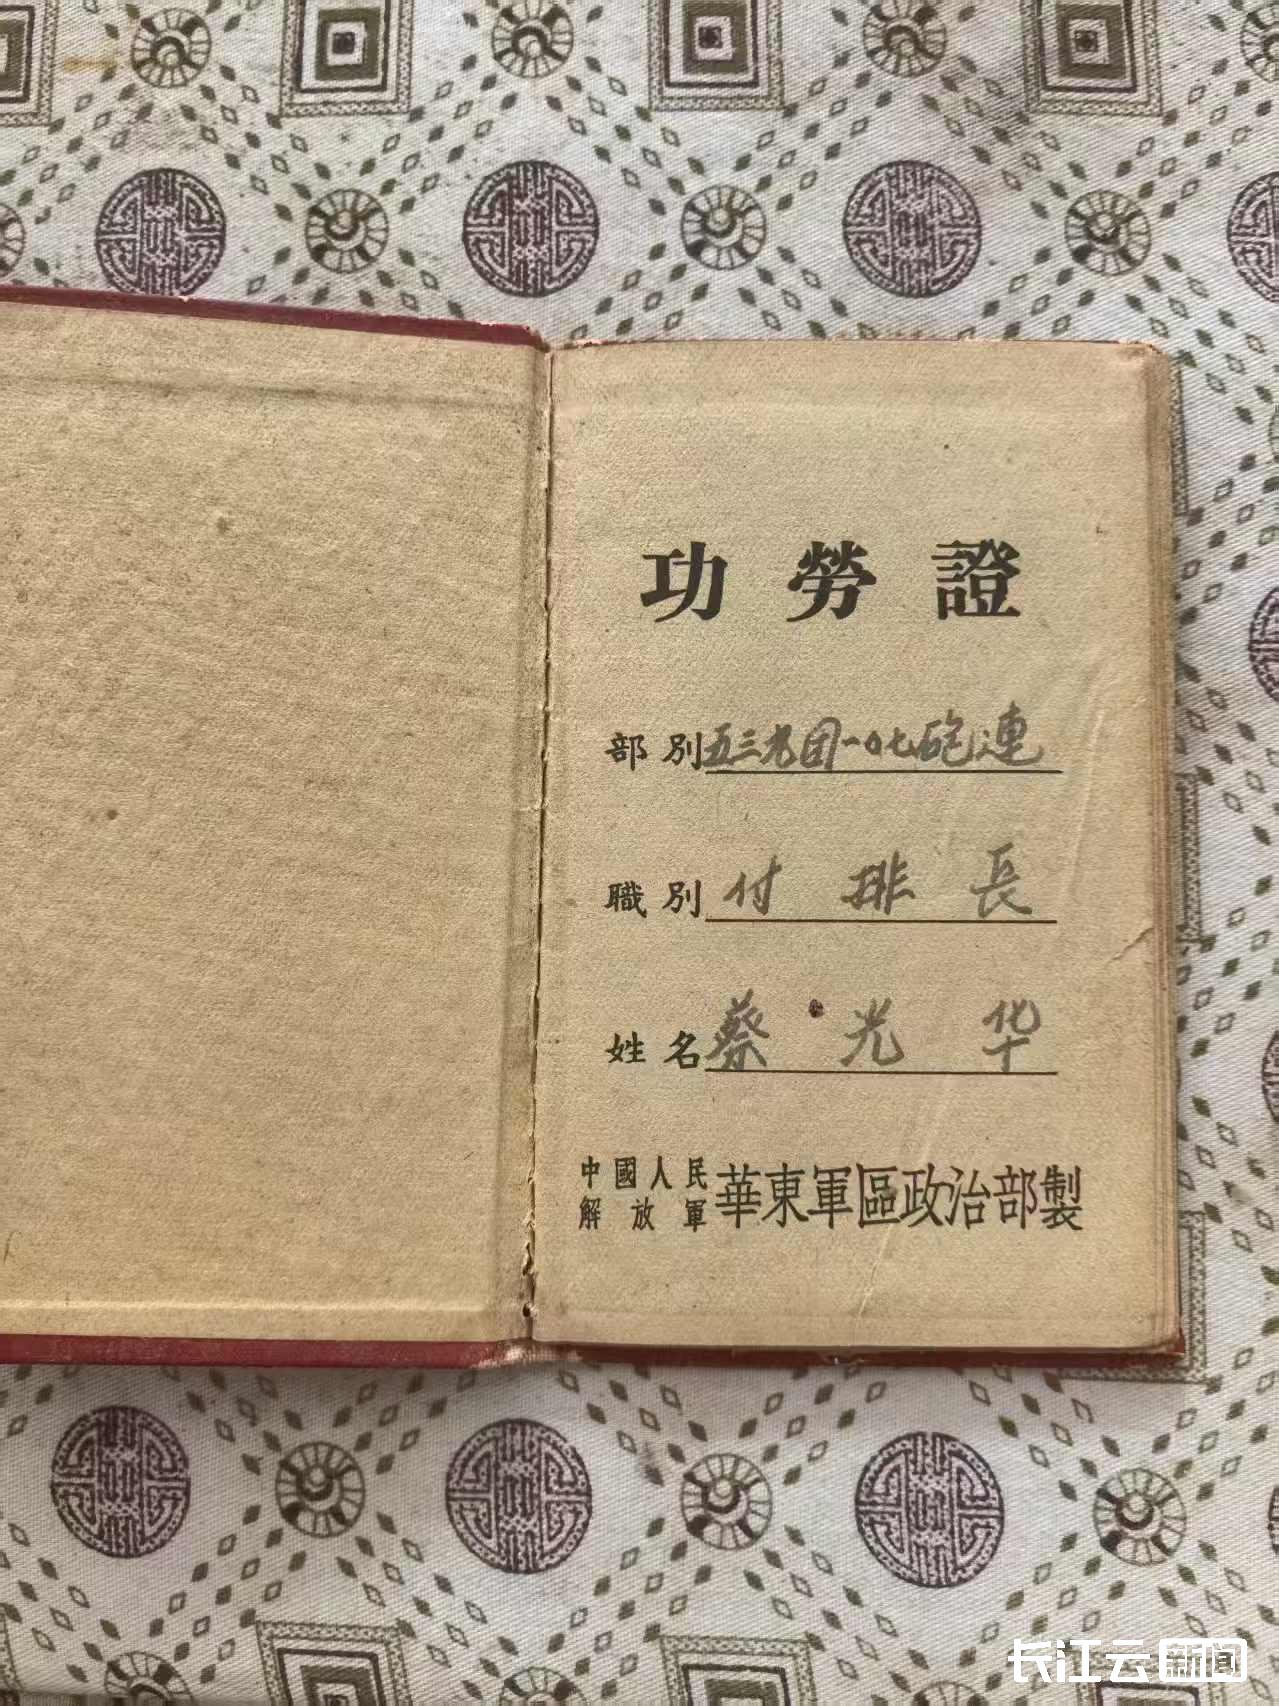 功勞證
部別 五三九团一〇七砲連
職別 付排長
姓名 蔡光华
中國人民解放軍華東軍區政治部製
长江云新闻